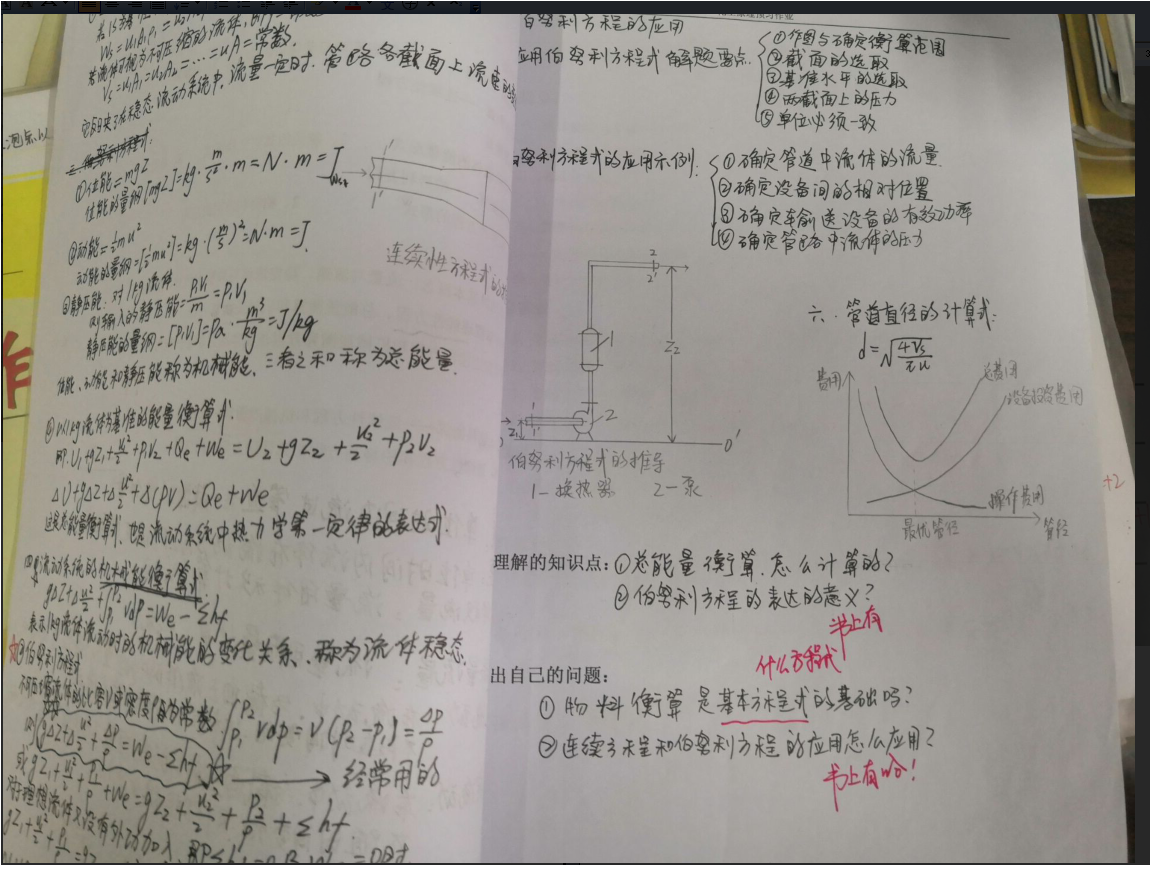 流体可视为不可压缩的流体
Vs=u₁A₁=u₂A₂=…=uA=常数.
它反映了在稳态流动系统中,流量一定时.管路各截面上流速的
①位能=mgZ
位能的量纲[mgZ]=kg·m/s²·m=N·m=J
②动能=½mu²
动能的量纲=[½mu²]=kg·(m/s)²=N·m=J.
③静压能:对1kg流体.
则输入的静压能=P₁V₁/m=P₁V₁
静压能的量纲=[P₁V₁]=Pa·m³/kg=J/kg
位能、动能和静压能称为机械能、三者之和称为总能量.
④以1kg流体为基准的能量衡算式.
即.U₁+gZ₁+u₁²/2+P₁V₂+Qe+We=U₂+gZ₂+u₂²/2+P₂V₂
ΔU+gΔZ+Δu²/2+Δ(pV)=Qe+We
这是总能量衡算式、也是流动系统中热力学第一定律的表达式
流动系统的机械能衡算式
gΔZ+Δu²/2+∫P₁P₂vdp=We-Σhf
表示1kg流体流动时的机械能的变化关系、称为流体稳态
伯努利方程式
不可压缩流体的比容V或密度ρ为常数 ∫P₁P₂vdp=V(P₂-P₁)=Δp/ρ
gΔZ+Δu²/2+Δp/ρ=We-Σhf → 经常用的
或gZ₁+u₁²/2+P₁/ρ+We=gZ₂+u₂²/2+P₂/ρ+Σhf
对于理想流体又没有外功加入
1
1'
Wst
连续性方程式的
伯努利方程的应用
应用伯努利方程式解题要点
①作图与确定衡算范围
②截面的选取
③基准水平的选取
④两截面上的压力
⑤单位必须一致
努利方程式的应用示例:
①确定管道中流体的流量
②确定设备间的相对位置
③确定输送设备的有效功率
④确定管路中流体的压力
2
2'
1
Z₂
2
1
1'
Z₁
0'
伯努利方程式的推导
1-换热器 2-泵
六、管道直径的计算式:
d=√(4Vs/πu)
费用
总费用
设备投资费用
操作费用
最优管径
管径
+2
理解的知识点:①总能量衡算.怎么计算的?
②伯努利方程的表达的意义?
书上有
什么方程式
出自己的问题:
①物料衡算是基本方程式的基础吗?
②连续方程和伯努利方程的应用怎么应用?
书上有哈!